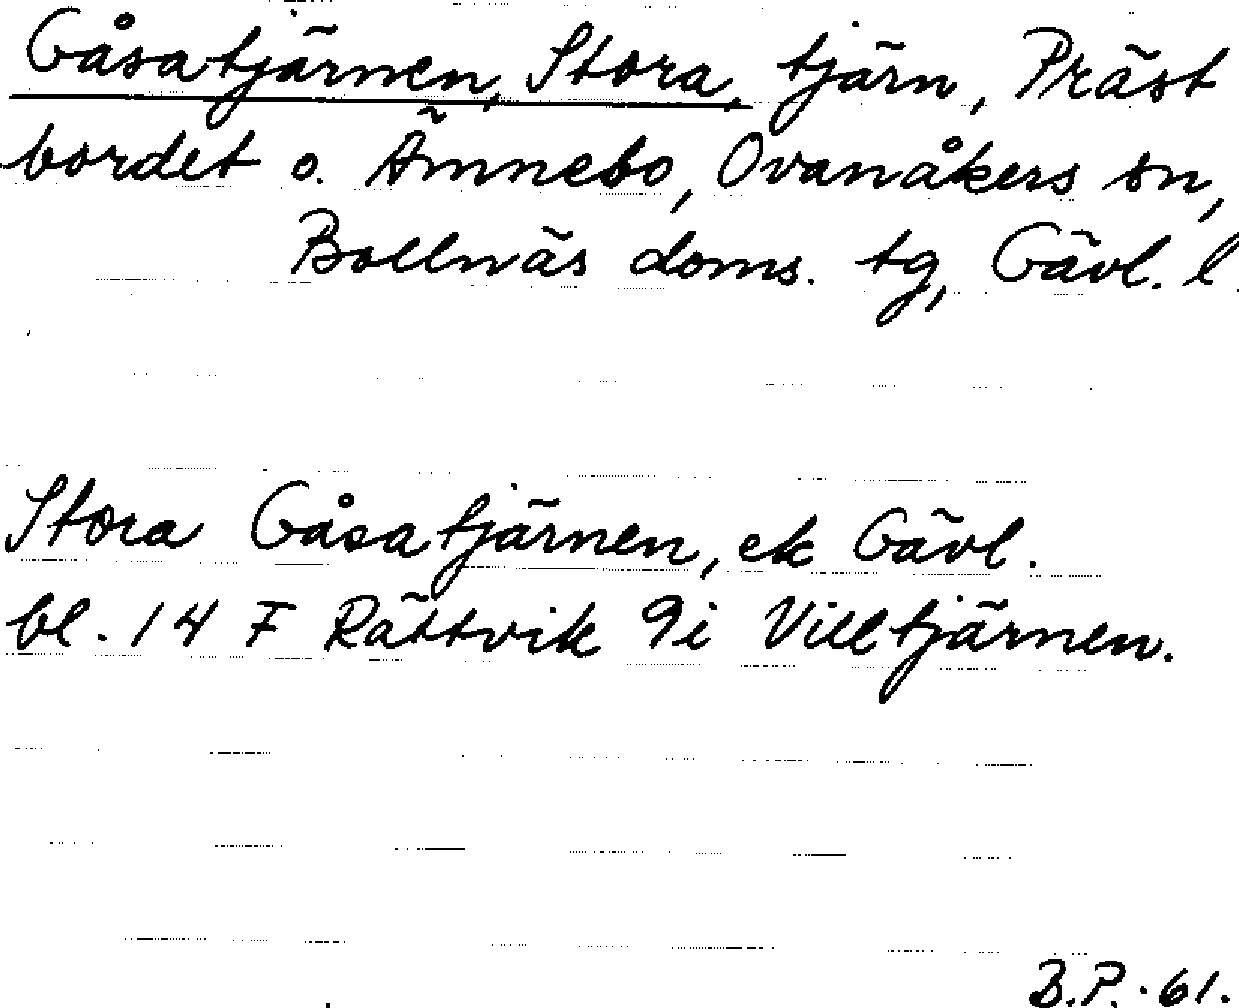 Gåsatjärnen, Stora, tjärn, Präst
bordet o. Ämnebo, Ovanåkers sn,
Bollnäs doms. tg, Gävl. l.
Stora Gåsatjärnen, ek Gävl.
bl. 14 F Rättvik 9i Villtjärnen.
B.P. -61.